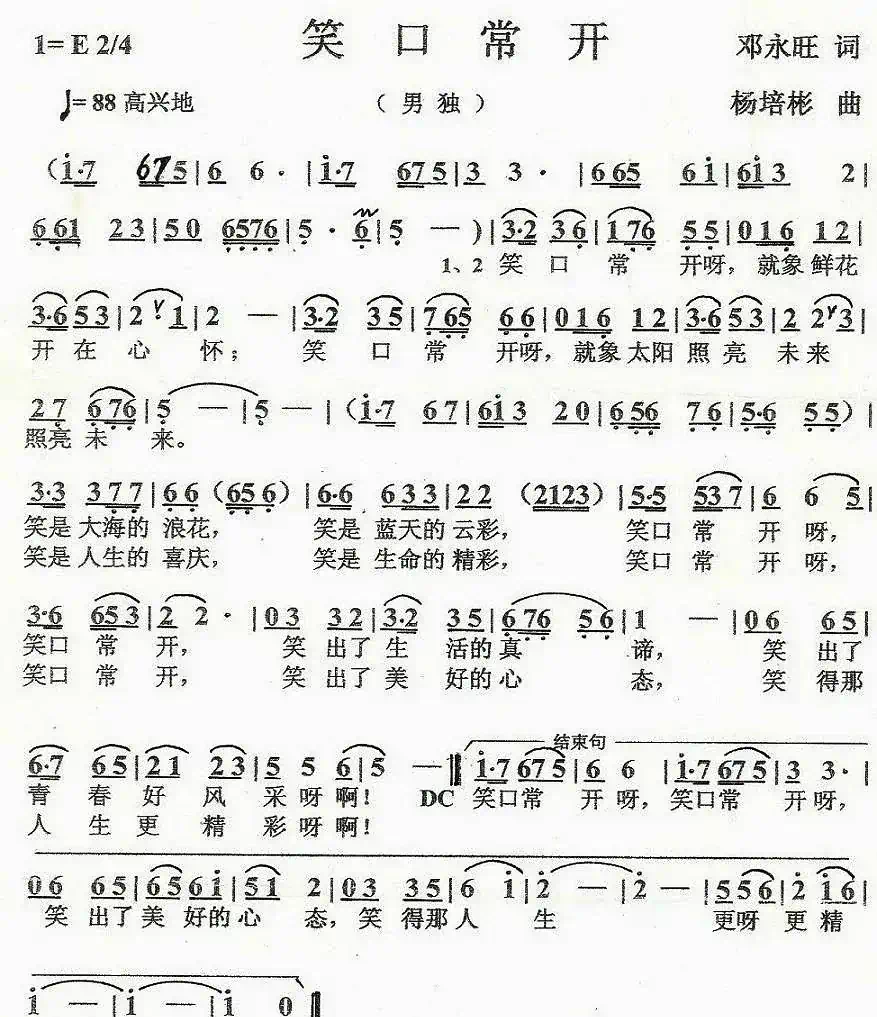 笑口常开
1= E 2/4
邓永旺 词
♩= 88 高兴地
（男独）
杨培彬 曲
(i·7 675|6 6·|i·7 675|3 3·|665 6i|6i3 2|
661 23|50 6576|5· 6|5 —)|3·2 36|176 55|016 12|
1、2 笑 口 常 开呀，就象鲜花
3·6 53|2 1|2 —|3·2 35|765 66|016 12|3·6 53|2 23|
开 在 心 怀； 笑 口 常 开呀，就象太阳 照 亮 未 来
27 676|5 —|5 —|(i·7 67|6i3 20|656 76|5·6 55)|
照亮 未 来。
3·3 377|66 (656)|6·6 633|22 (2123)|5·5 537|6 6 5|
笑是 大海的 浪花， 笑是 蓝天的 云彩， 笑口 常 开 呀，
笑是 人生的 喜庆， 笑是 生命的 精彩， 笑口 常 开 呀，
3·6 653|2 2·|03 32|3·2 35|676 56|1 —|06 65|
笑口 常 开， 笑 出了 生 活的 真 谛， 笑 出了
笑口 常 开， 笑 出了 美 好的 心 态， 笑 得那
结束句
6·7 65|21 23|5 5 6|5 —‖i·7 675|6 6|i·7 675|3 3·|
青 春 好 风 采 呀 啊！ DC 笑口常 开 呀，笑口常 开 呀，
人 生 更 精 彩 呀 啊！
06 65|65 6i|51 2|03 35|6 i|2 —|2 —|556|2 i6|
笑 出了 美 好的 心 态，笑 得那 人 生 更呀 更 精
i —|i —|i 0‖